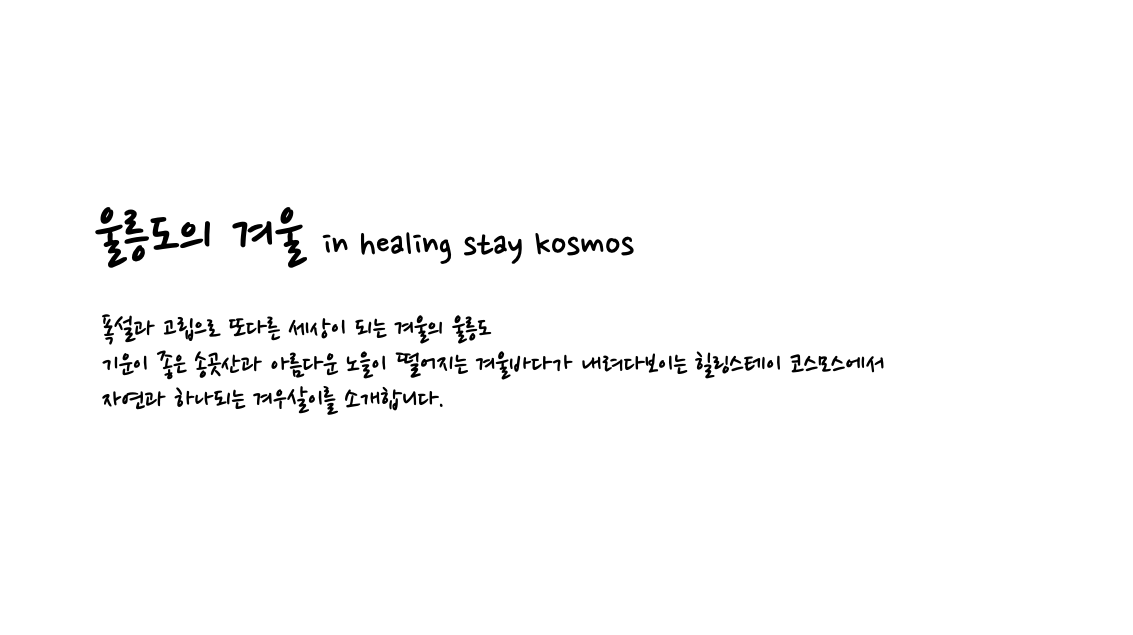 울릉도의 겨울 in healing stay kosmos
폭설과 고립으로 또다른 세상이 되는 겨울의 울릉도
기운이 좋은 송곳산과 아름다운 노을이 떨어지는 겨울바다가 내려다보이는 힐링스테이 코스모스에서
자연과 하나되는 겨우살이를 소개합니다.